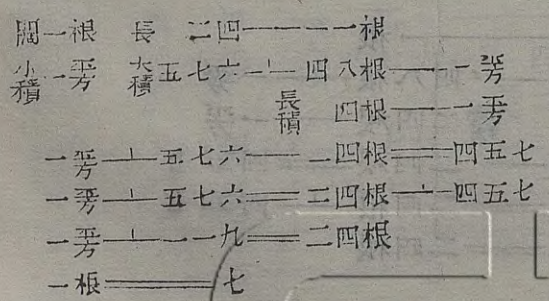 闊一根 長 二四——一根
小積 一平方 大積 五七六⊥四八根——一平方
長積 四根——一平方
一平方⊥五七六——二四根══四五七
一平方⊥五七六══二四根⊥四五七
一平方⊥一一九══二四根
一根══七